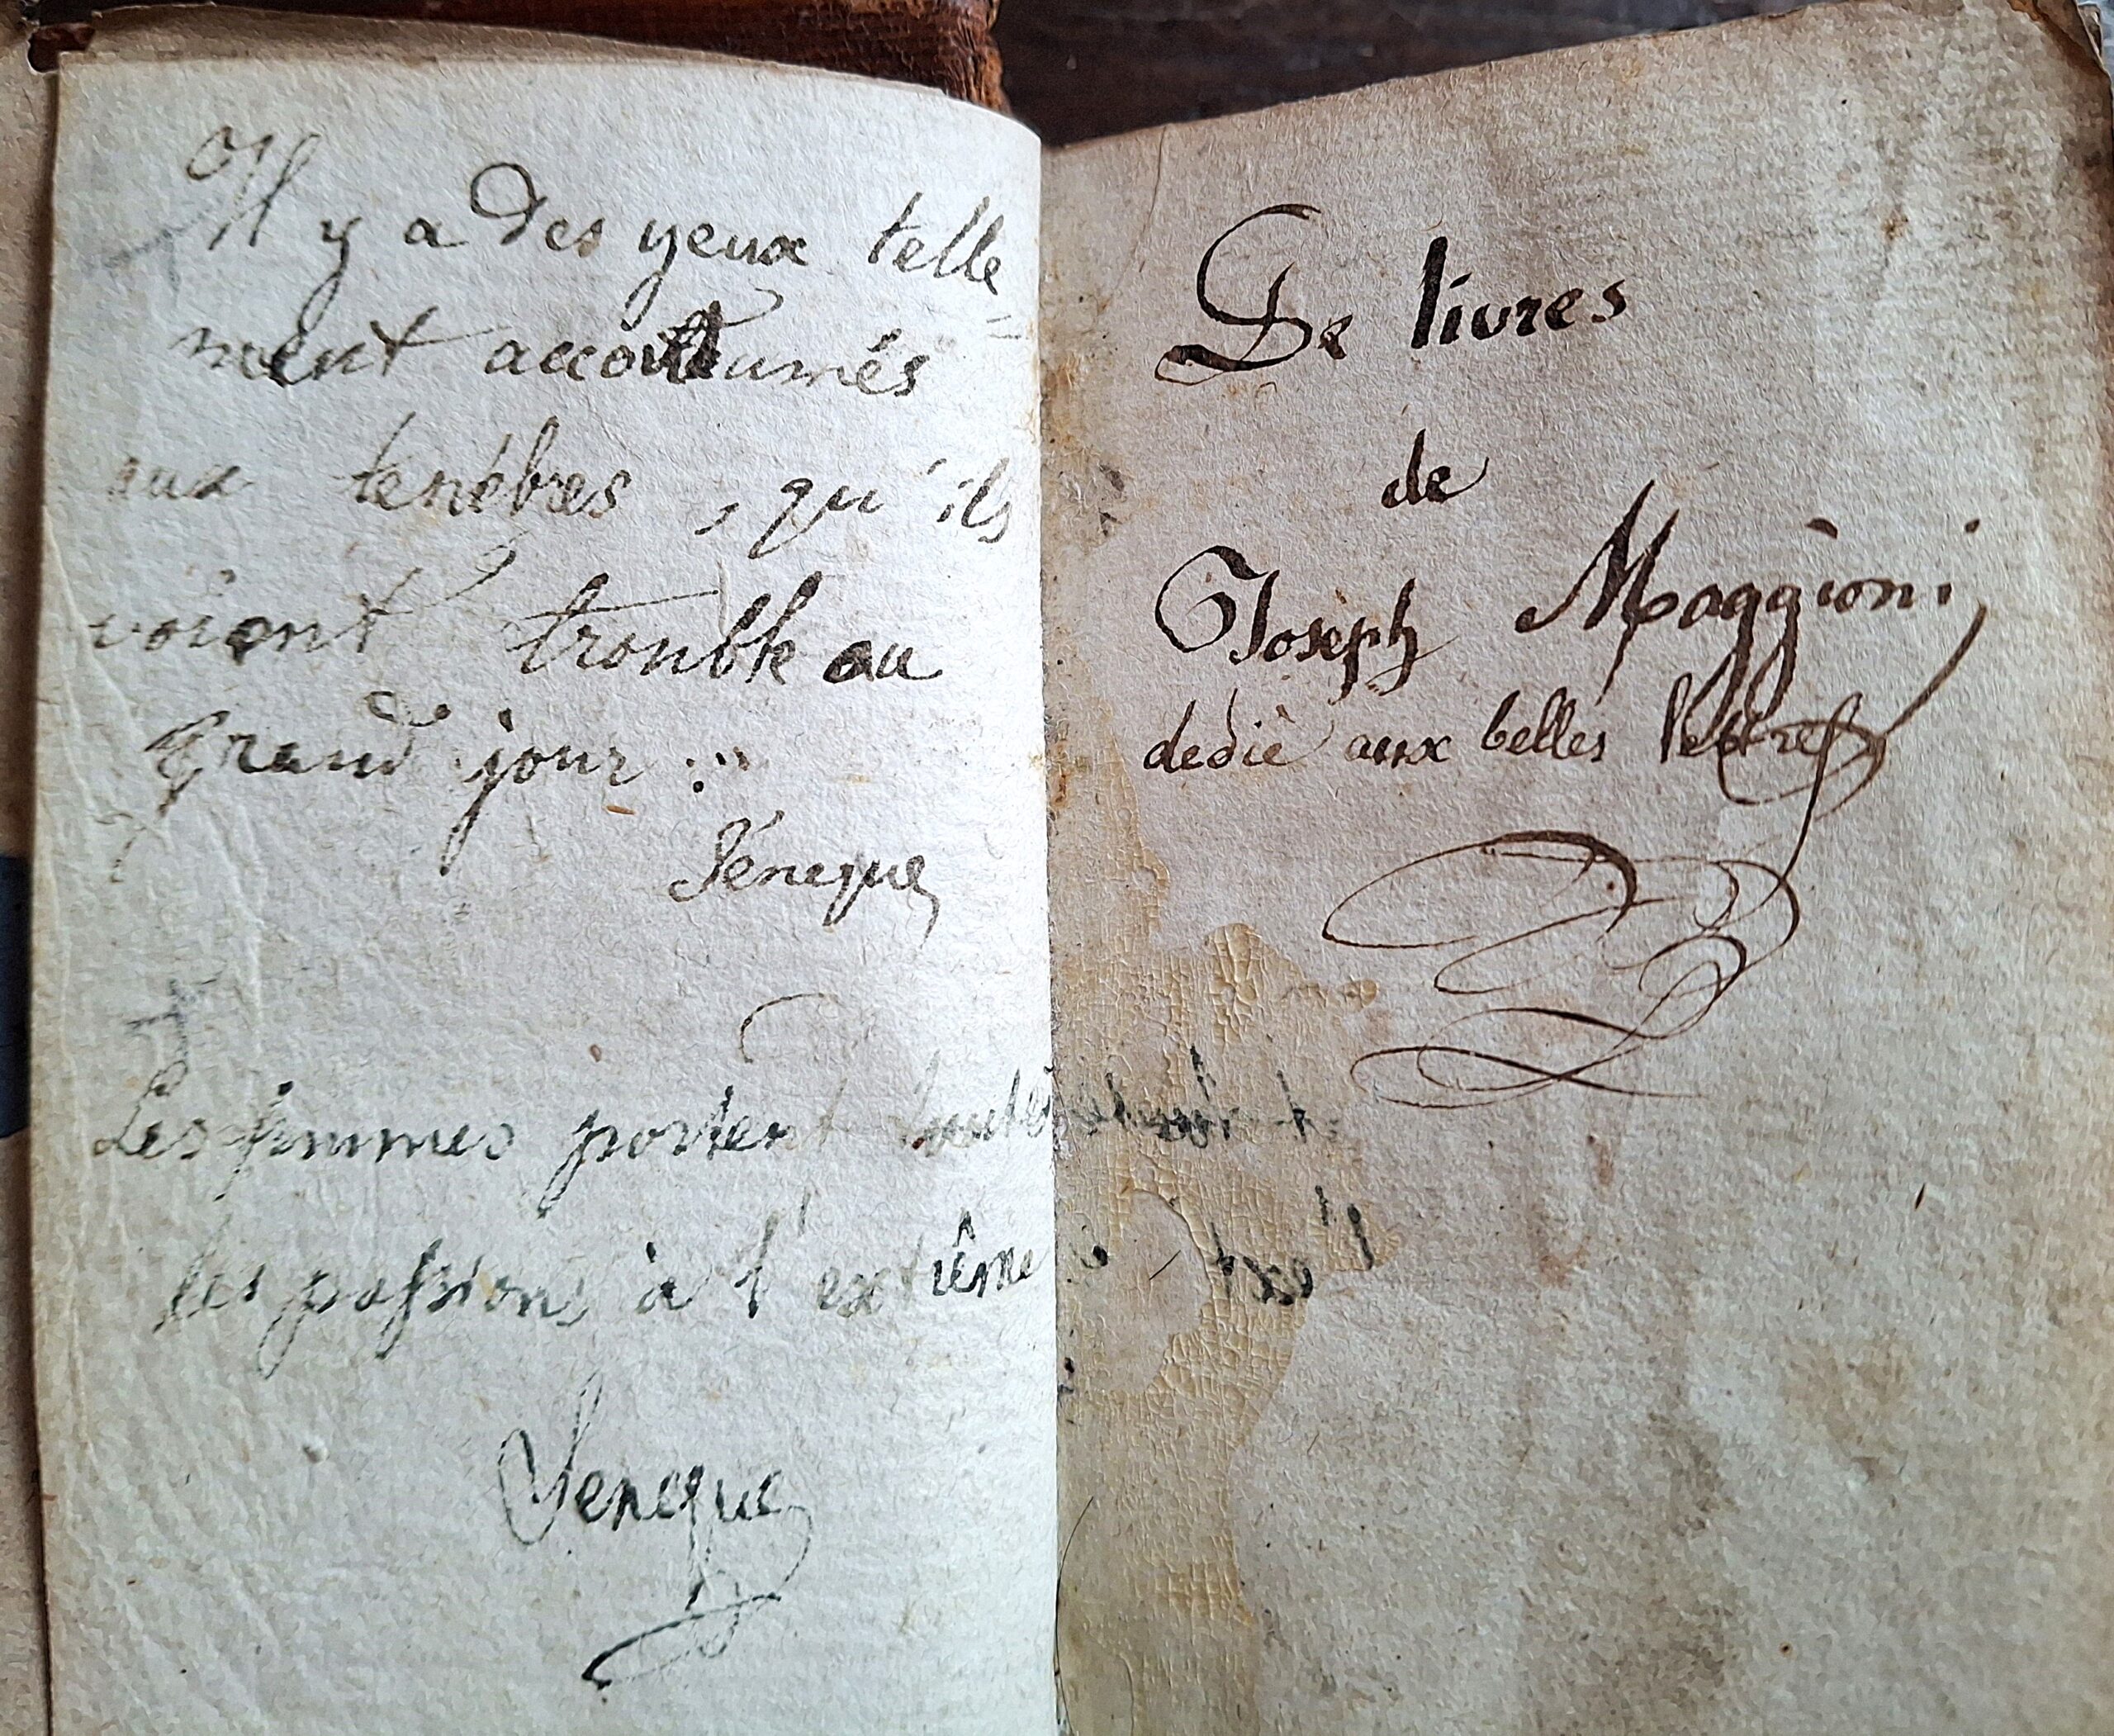 Il y a des yeux telle=
ment accoutumés
aux tenébres, qu'ils
voient trouble au
grand jour :
Séneque
Les femmes portent toutes
les passions à l'extrême
Seneque
De livres
de
Joseph Maggioni
dedié aux belles lettres